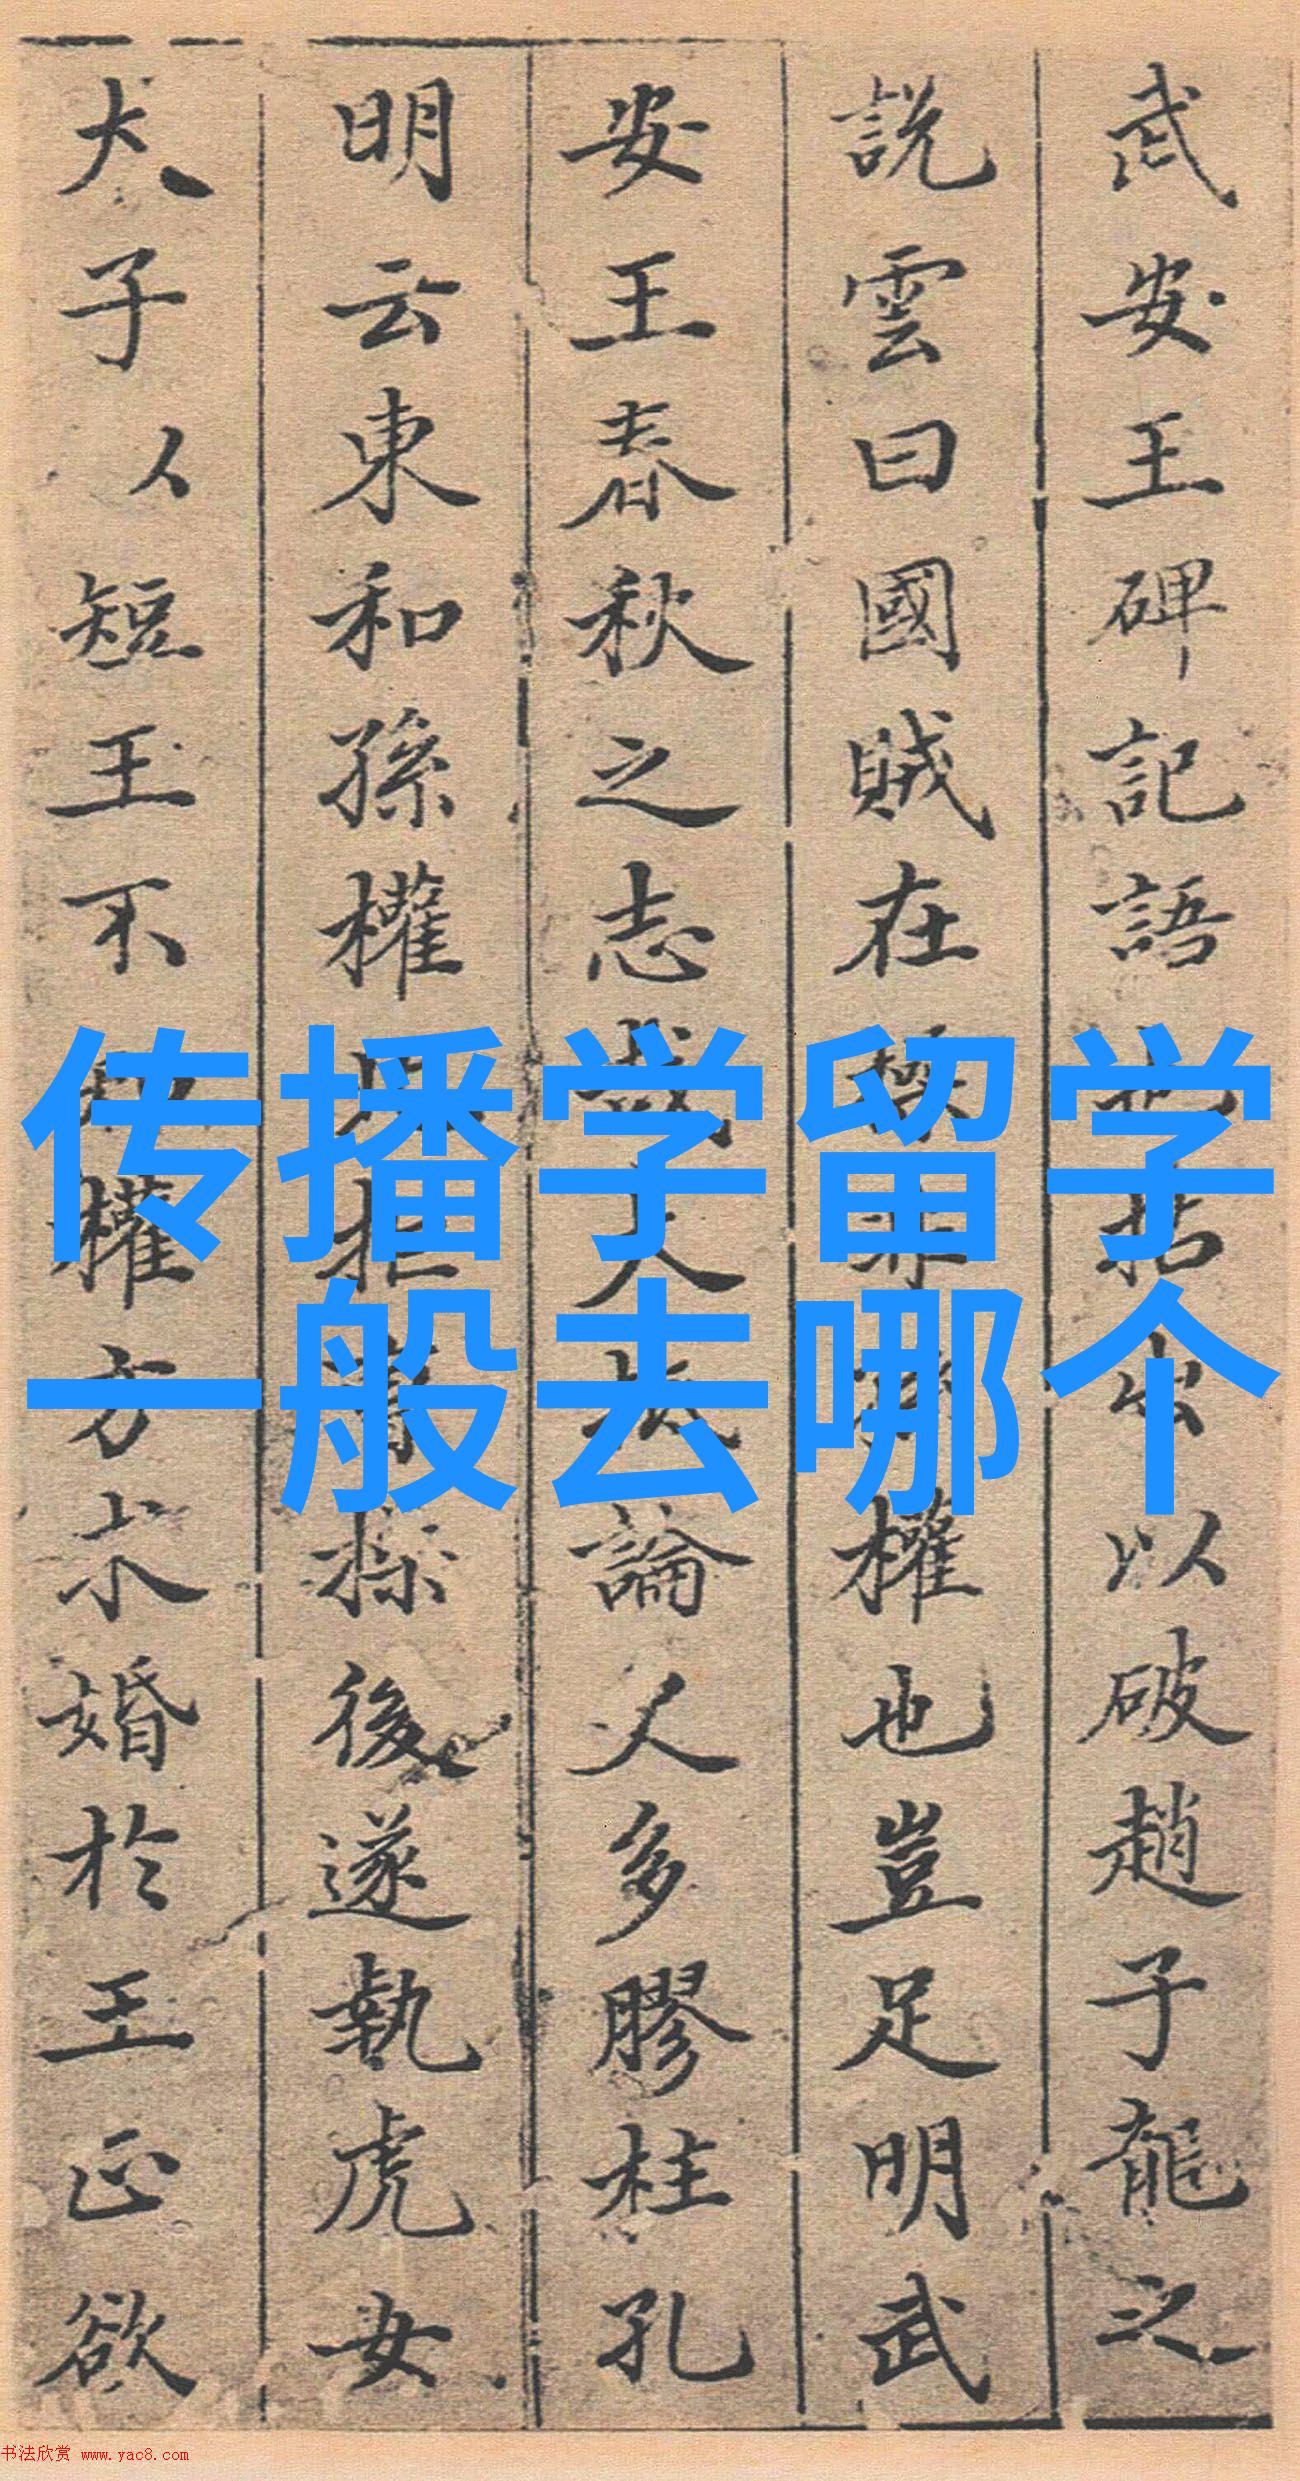 武安王碑記語拈出以破趙子龍之
説雲曰國賊在操非孫權也豈足明武
安王春秋之志哉大抵論人多膠柱孔
明云東和孫權北拒曹操後遂執虎女
犬子以短王不知權方求婚於王正欲
传播学留学
一般去哪个
书法欣赏 www.yac8.com